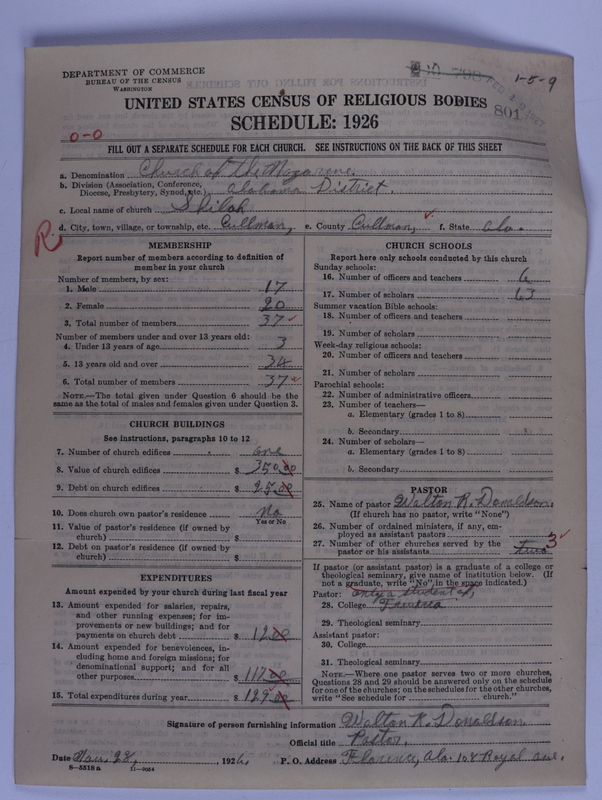 DEPARTMENT OF COMMERCE
BUREAU OF THE CENSUS
WASHINGTON
1-5-9
801
UNITED STATES CENSUS OF RELIGIOUS BODIES
SCHEDULE: 1926
0-0
FILL OUT A SEPARATE SCHEDULE FOR EACH CHURCH. SEE INSTRUCTIONS ON THE BACK OF THIS SHEET
a. Denomination Church of the Nazarene.
b. Division (Association, Conference, Diocese, Presbytery, Synod, etc.) Alabama District.
c. Local name of church Shiloh
d. City, town, village, or township, etc. Cullman, e. County Cullman, f. State Ala.
R
MEMBERSHIP
Report number of members according to definition of
member in your church
Number of members, by sex:
1. Male 17
2. Female 20
3. Total number of members 37
Number of members under and over 13 years old:
4. Under 13 years of age 3
5. 13 years old and over 34
6. Total number of members 37
NOTE.—The total given under Question 6 should be
same as the total of males and females given under Question 3.
CHURCH BUILDINGS
See instructions, paragraphs 10 to 12
7. Number of church edifices one
8. Value of church edifices $ 350.00
9. Debt on church edifices $ 25.00
10. Does church own pastor's residence No
Yes or No
11. Value of pastor's residence (if owned by
church) $
12. Debt on pastor's residence (if owned by
church) $
EXPENDITURES
Amount expended by your church during last fiscal year
13. Amount expended for salaries, repairs,
and other running expenses; for im-
provements or new buildings; and for
payments on church debt $ 12.00
14. Amount expended for benevolences, in-
cluding home and foreign missions; for
denominational support; and for all
other purposes $ 117.00
15. Total expenditures during year $ 129.00
CHURCH SCHOOLS
Report here only schools conducted by this church
Sunday schools:
16. Number of officers and teachers 6
17. Number of scholars 63
Summer vacation Bible schools:
18. Number of officers and teachers
19. Number of scholars
Week-day religious schools:
20. Number of officers and teachers
21. Number of scholars
Parochial schools:
22. Number of administrative officers
23. Number of teachers—
a. Elementary (grades 1 to 8)
b. Secondary
24. Number of scholars—
a. Elementary (grades 1 to 8)
b. Secondary
PASTOR
25. Name of pastor Walton R. Donaldson.
(If church has no pastor, write "None")
26. Number of ordained ministers, if any, em-
ployed as assistant pastors
27. Number of other churches served by the
pastor or his assistants two 3
If pastor (or assistant pastor) is a graduate of a college or
theological seminary, give name of institution below. (If
not a graduate, write "No" in the space indicated.)
Pastor: only a student at,
28. College Trevecca
29. Theological seminary
Assistant pastor:
30. College
31. Theological seminary
NOTE.—Where one pastor serves two or more churches,
Questions 28 and 29 should be answered only on the schedule
for one of the churches; on the schedules for the other churches,
write "See schedule for church."
Signature of person furnishing information Walton R. Donaldson
Official title Pastor.
Date 28, 1926. P. O. Address Florence, Ala. 104 Royal ave.
8—5518 a 11—9054